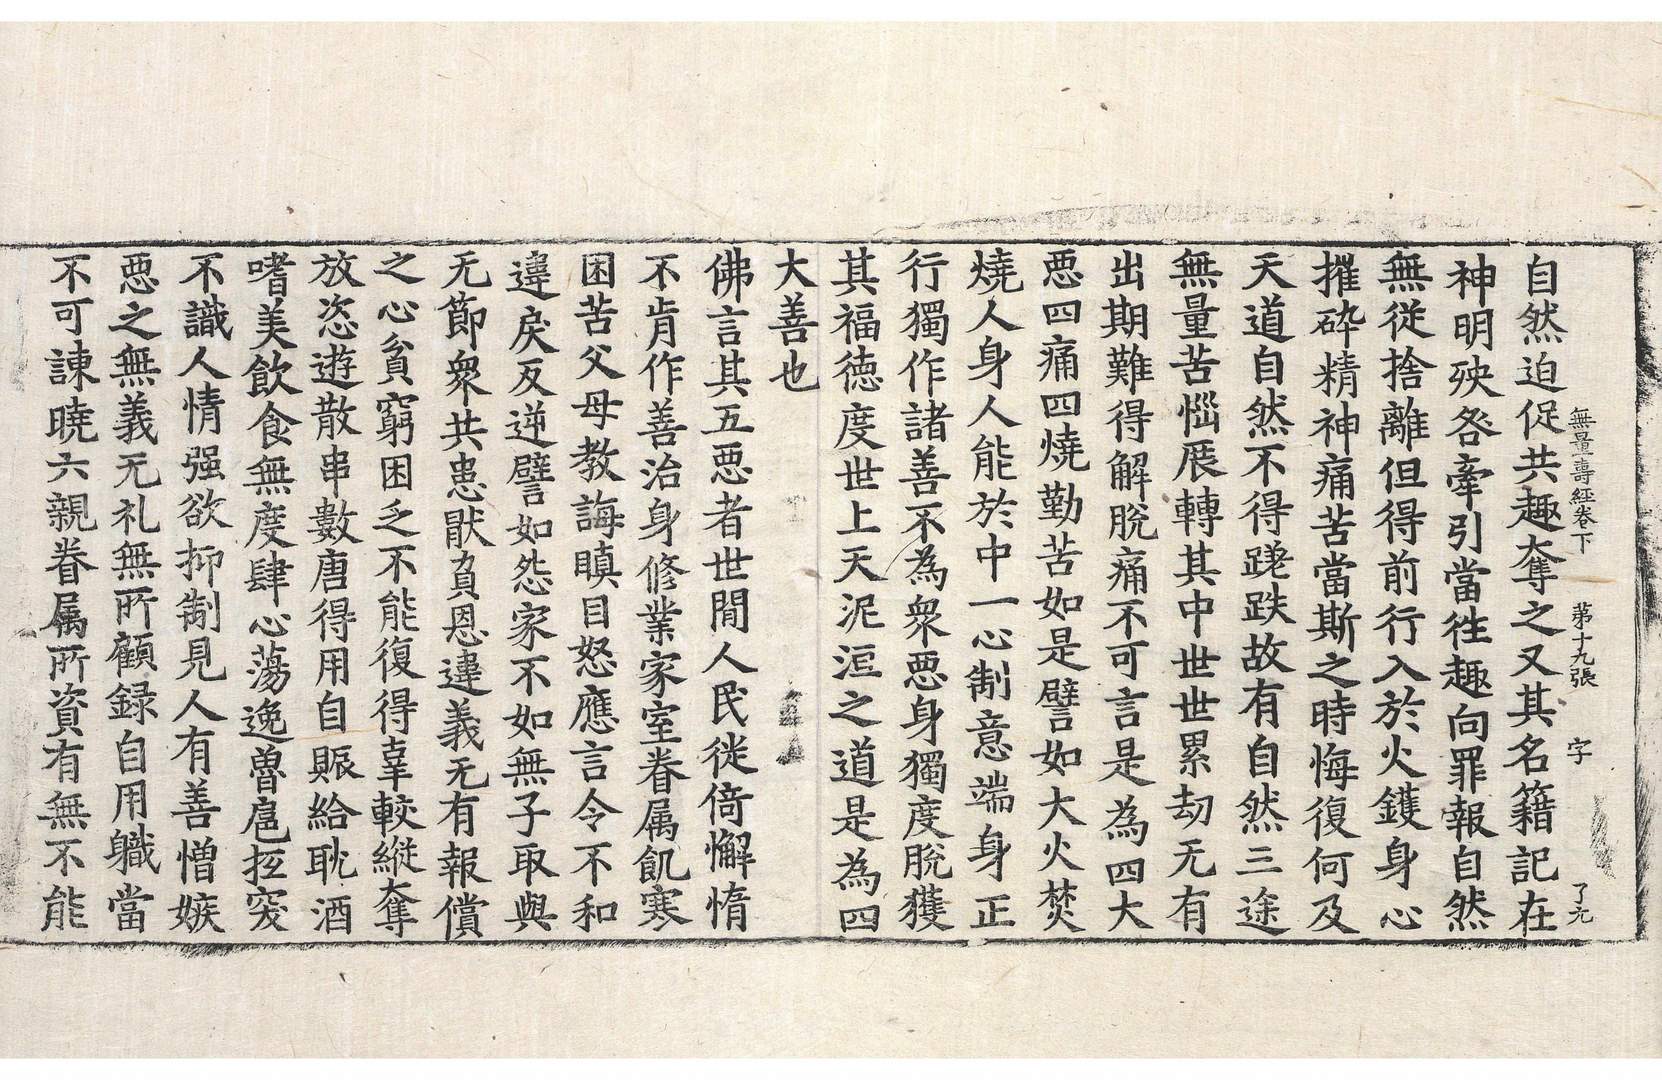 無量壽經卷下 第十九張 字 了元
自然迫促共趣奪之又其名籍記在
神明殃咎牽引當徃趣向罪報自然
無從捨離但得前行入於火鑊身心
摧碎精神痛苦當斯之時悔復何及
天道自然不得蹉跌故有自然三途
無量苦惱展轉其中世世累劫无有
出期難得解脫痛不可言是為四大
惡四痛四燒勤苦如是譬如大火焚
燒人身人能於中一心制意端身正
行獨作諸善不為衆惡身獨度脫獲
其福德度世上天泥洹之道是為四
大善也
佛言其五惡者世間人民徙倚懈惰
不肯作善治身修業家室眷属飢寒
困苦父母教誨瞋目怒應言令不和
違戾反逆譬如怨家不如無子取與
无節衆共患猒負恩違義无有報償
之心貧窮困乏不能復得辜較縱奪
放恣遊散串數唐得用自賑給耽酒
嗜美飲食無度肆心蕩逸魯扈抵突
不識人情强欲抑制見人有善憎嫉
惡之無義无礼無所顧録自用職當
不可諫曉六親眷属所資有無不能